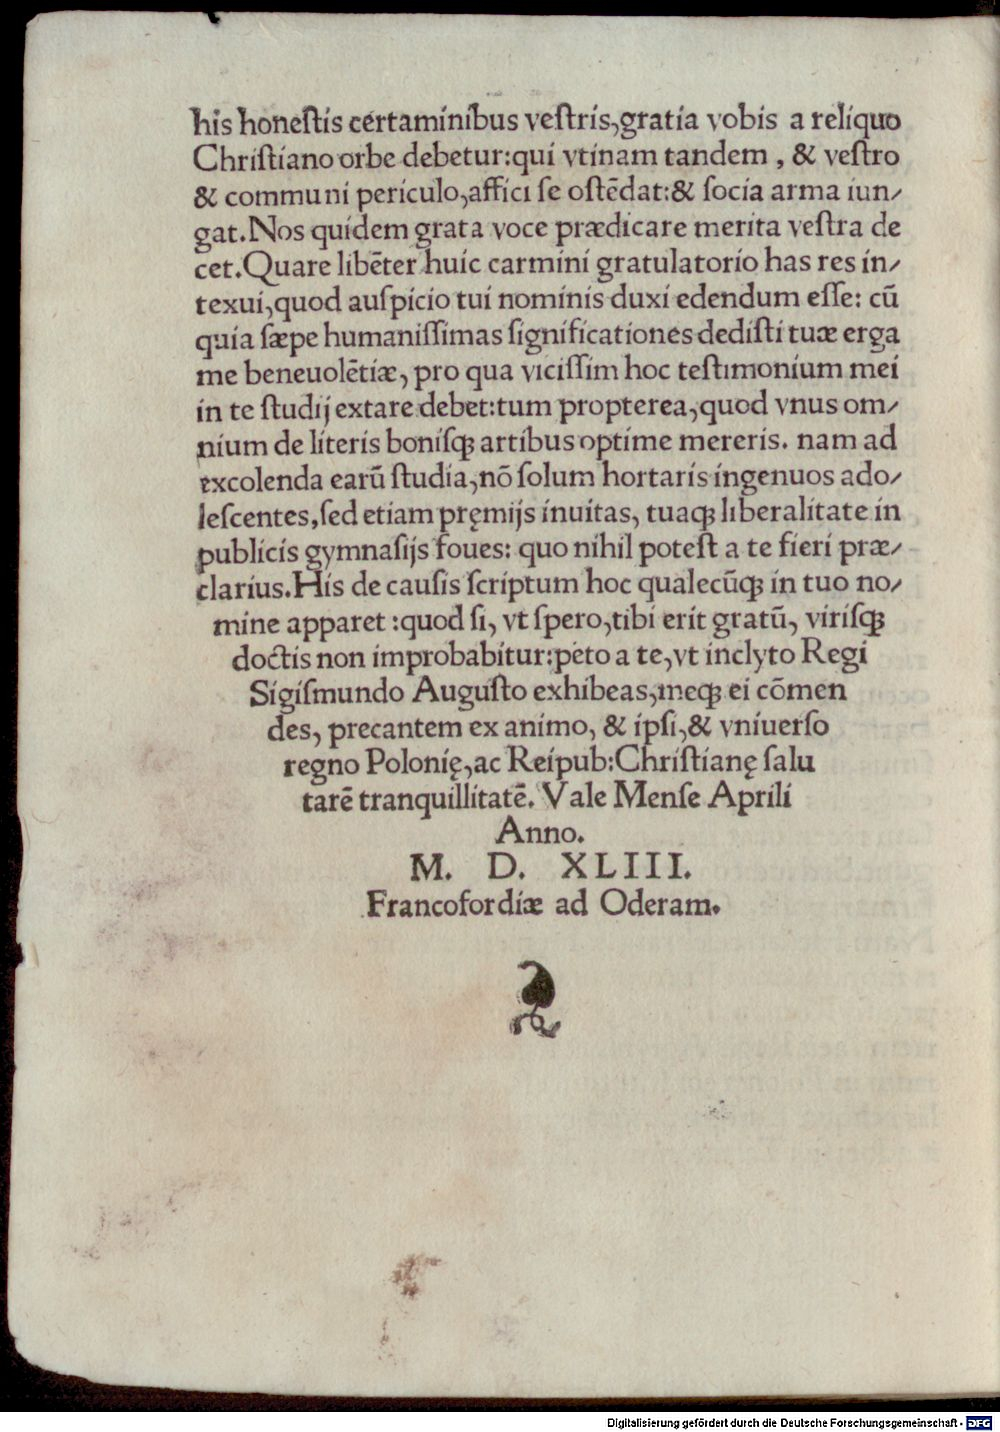 his honeſtis certaminibus veſtris,gratia vobis a reliquo
Chriſtiano orbe debetur:qui vtinam tandem , & veſtro
& communi periculo,affici ſe oſtēdat:& ſocia arma iun⸗
gat.Nos quidem grata voce prædicare merita veſtra de
cet.Quare libēter huic carmini gratulatorio has res in⸗
texui,quod auſpicio tui nominis duxi edendum eſſe: cū
quia ſæpe humaniſſimas ſignificationes dediſti tuæ erga
me beneuolētiæ, pro qua viciſſim hoc teſtimonium mei
in te ſtudij extare debet:tum propterea,quod vnus om⸗
nium de literis boniſqꝫ artibus optime mereris. nam ad
excolenda earū ſtudia,nō ſolum hortaris ingenuos ado⸗
leſcentes,ſed etiam pręmijs inuitas, tuaqꝫ liberalitate in
publicis gymnaſijs foues: quo nihil poteſt a te fieri præ⸗
clarius.His de cauſis ſcriptum hoc qualecūqꝫ in tuo no⸗
mine apparet :quod ſi, vt ſpero,tibi erit gratū, viriſqꝫ
doctis non improbabitur:peto a te,vt inclyto Regi
Sigiſmundo Auguſto exhibeas,meqꝫ ei cōmen
des, precantem ex animo, & ipſi,& vniuerſo
regno Polonię,ac Reipub:Chriſtianę ſalu
tarē tranquillitatē. Vale Menſe Aprili
Anno.
M. D. XLIII.
Francofordiæ ad Oderam.
Digitalisierung gefördert durch die Deutsche Forschungsgemeinschaft - DFG